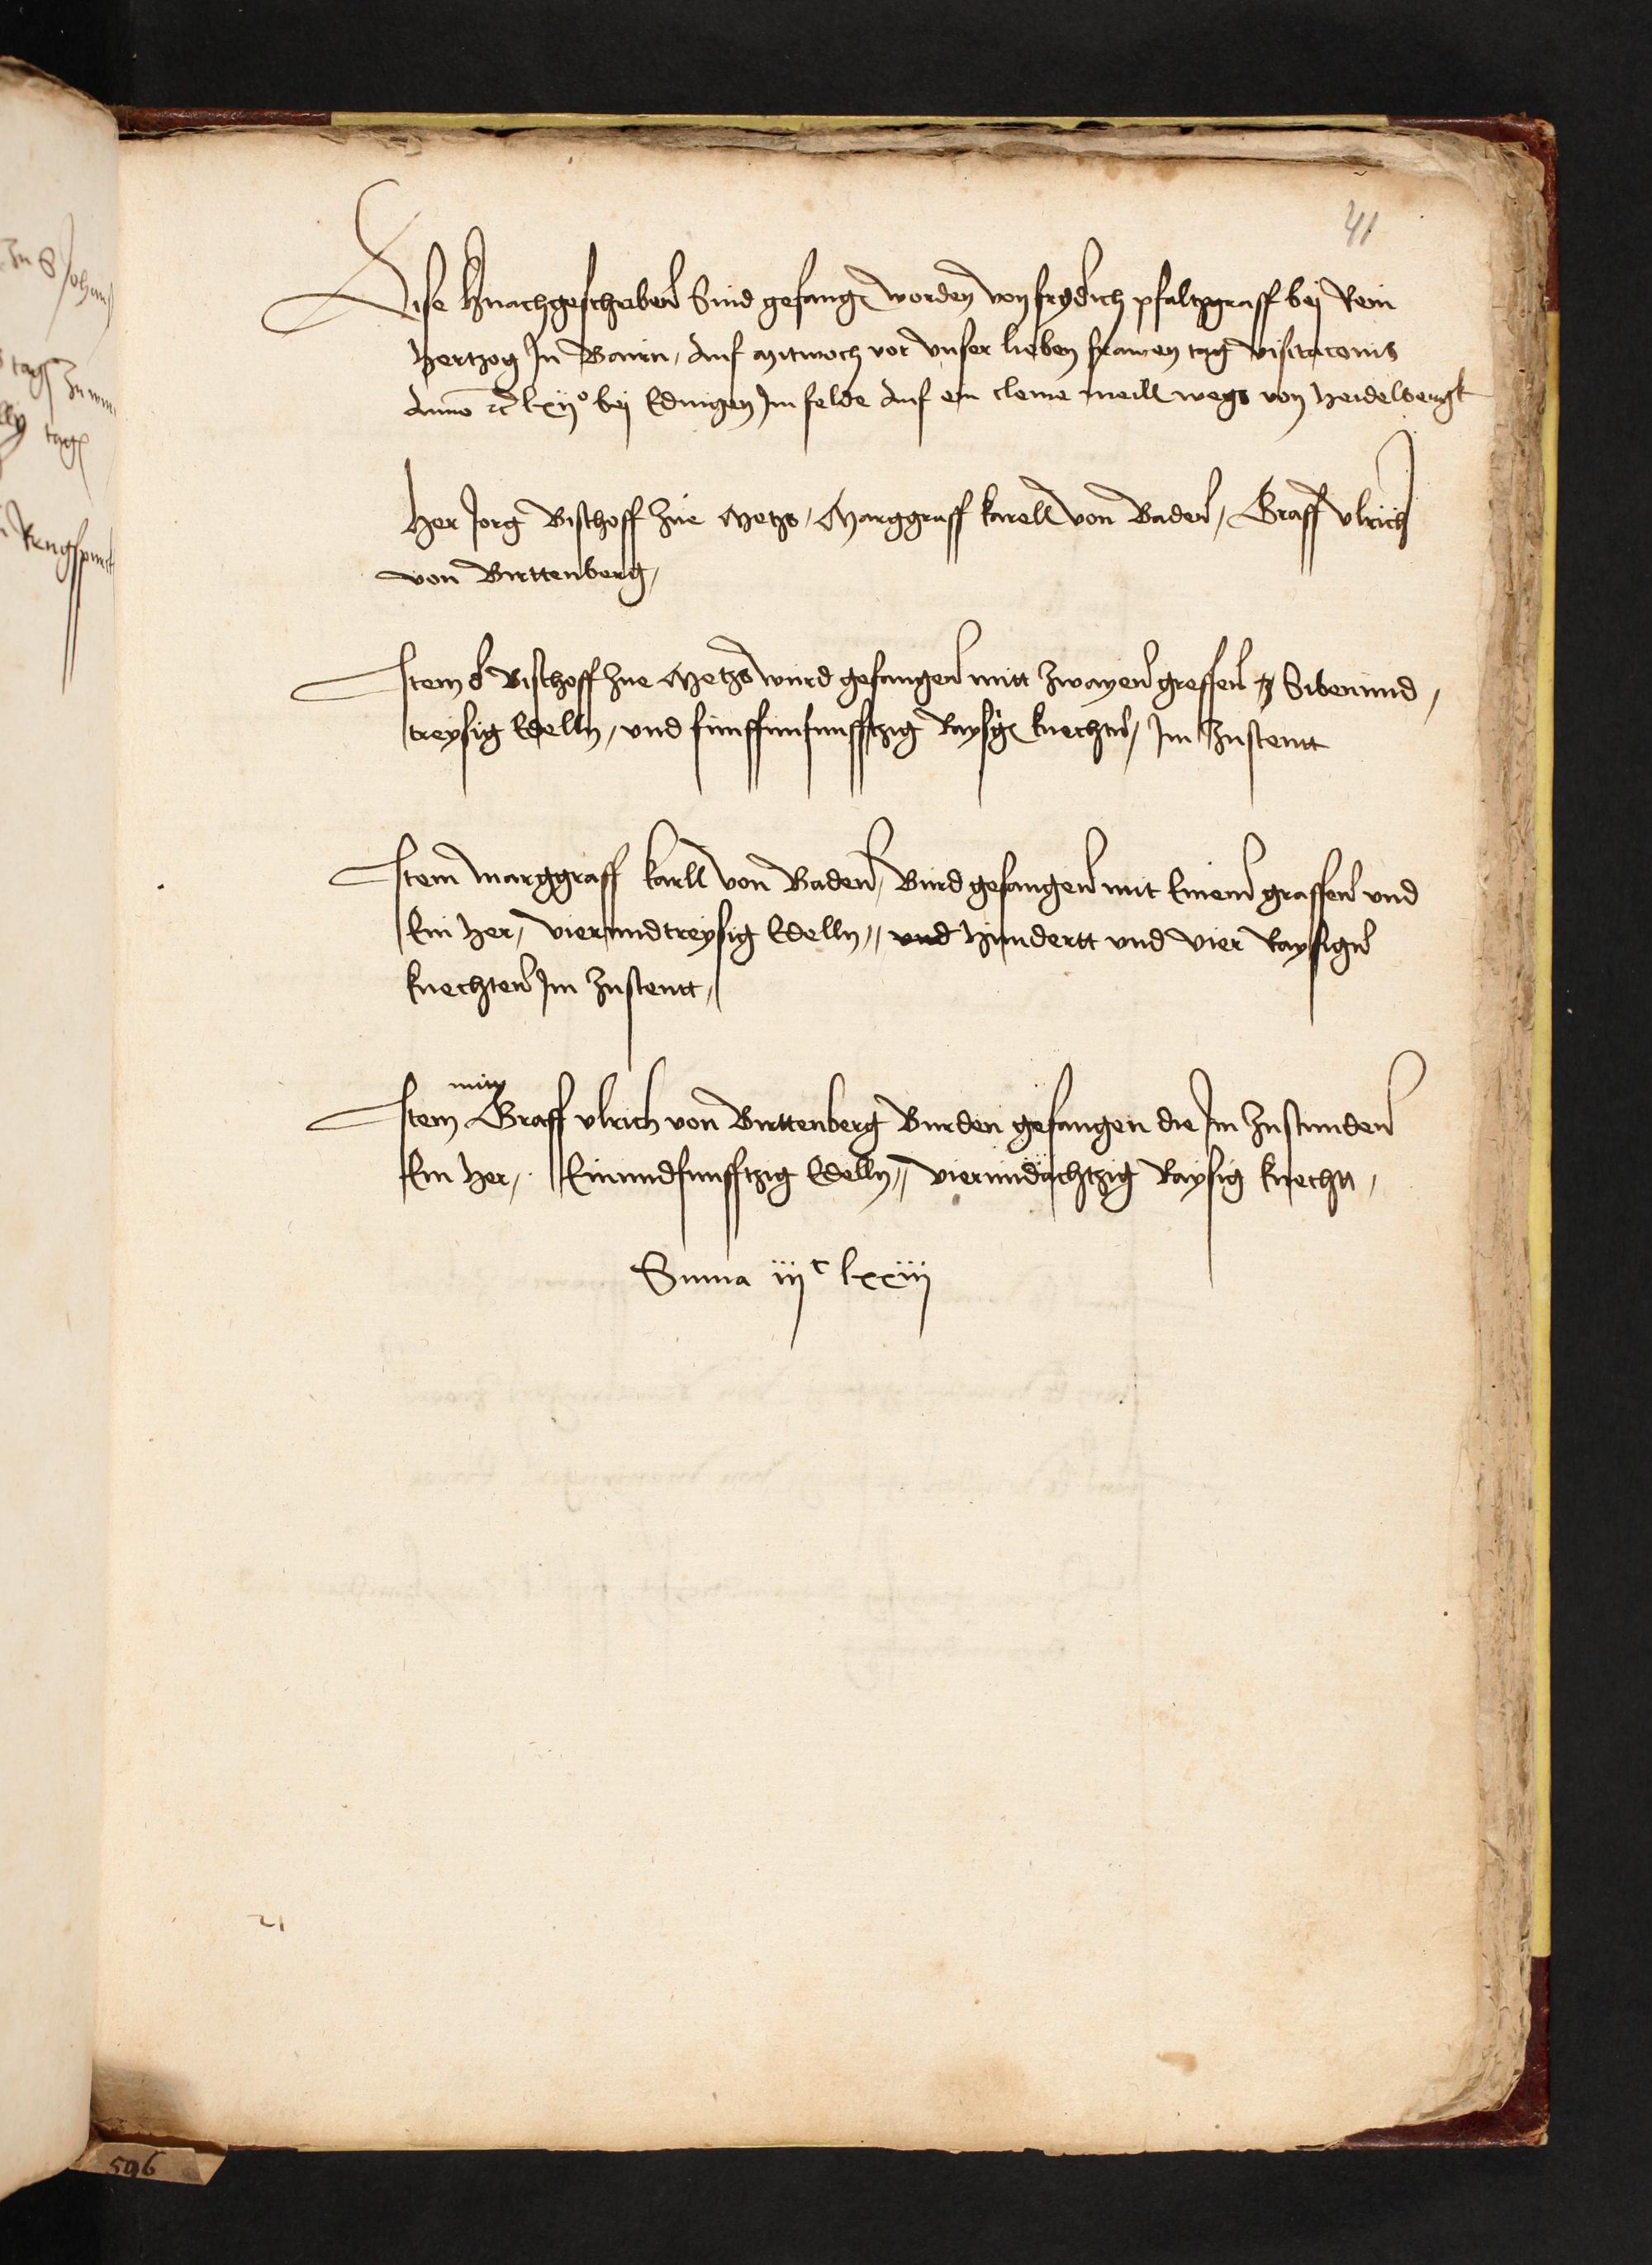 41
Dise hnachgeschriben Sind gefang worden von frydrich pfaltzgraff bej Rein
hertzog Jn Bairn, Auf mitwoch vor vnser lieben frawen tag visitaconis
Anno etc lxij° bej Edingen Jm felde Auf ein cleine meill wegs von heidelbergk
Her Jorg Bischoff zue Metzs, Marggraff karell von Baden, Graff vlrich
von Birttenberg,
Jtem d Bischoff zue Metzs wurd gefangen mitt zwayen greffen Sibenund,
treysig Edelln, vnd funffunfunfftzig Raysig knechten, Jm zustentt
Jtem marggraff karll von Baden, Burd gefangen mit Einem graffen vnd
Ein her, vierundtreysig Edelln,, vnd hundertt vnd vier Raysigen
knechten Jm zustentt,
Jtem mitt Graff vlrich von Birttenberg Burden gefangen die Jm zustunden
Ein her, Einundfunfftzig Edelln,, vierundachtzig Raysig knechtt,
Suma iij c lxxiij
21
596